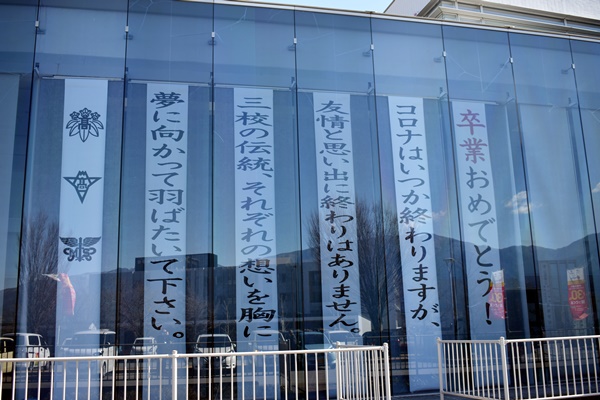 卒業おめでとう！
コロナはいつか終わりますが、
友情と思い出に終わりはありません。
三校の伝統、それぞれの想いを胸に
夢に向かって羽ばたいて下さい。
高